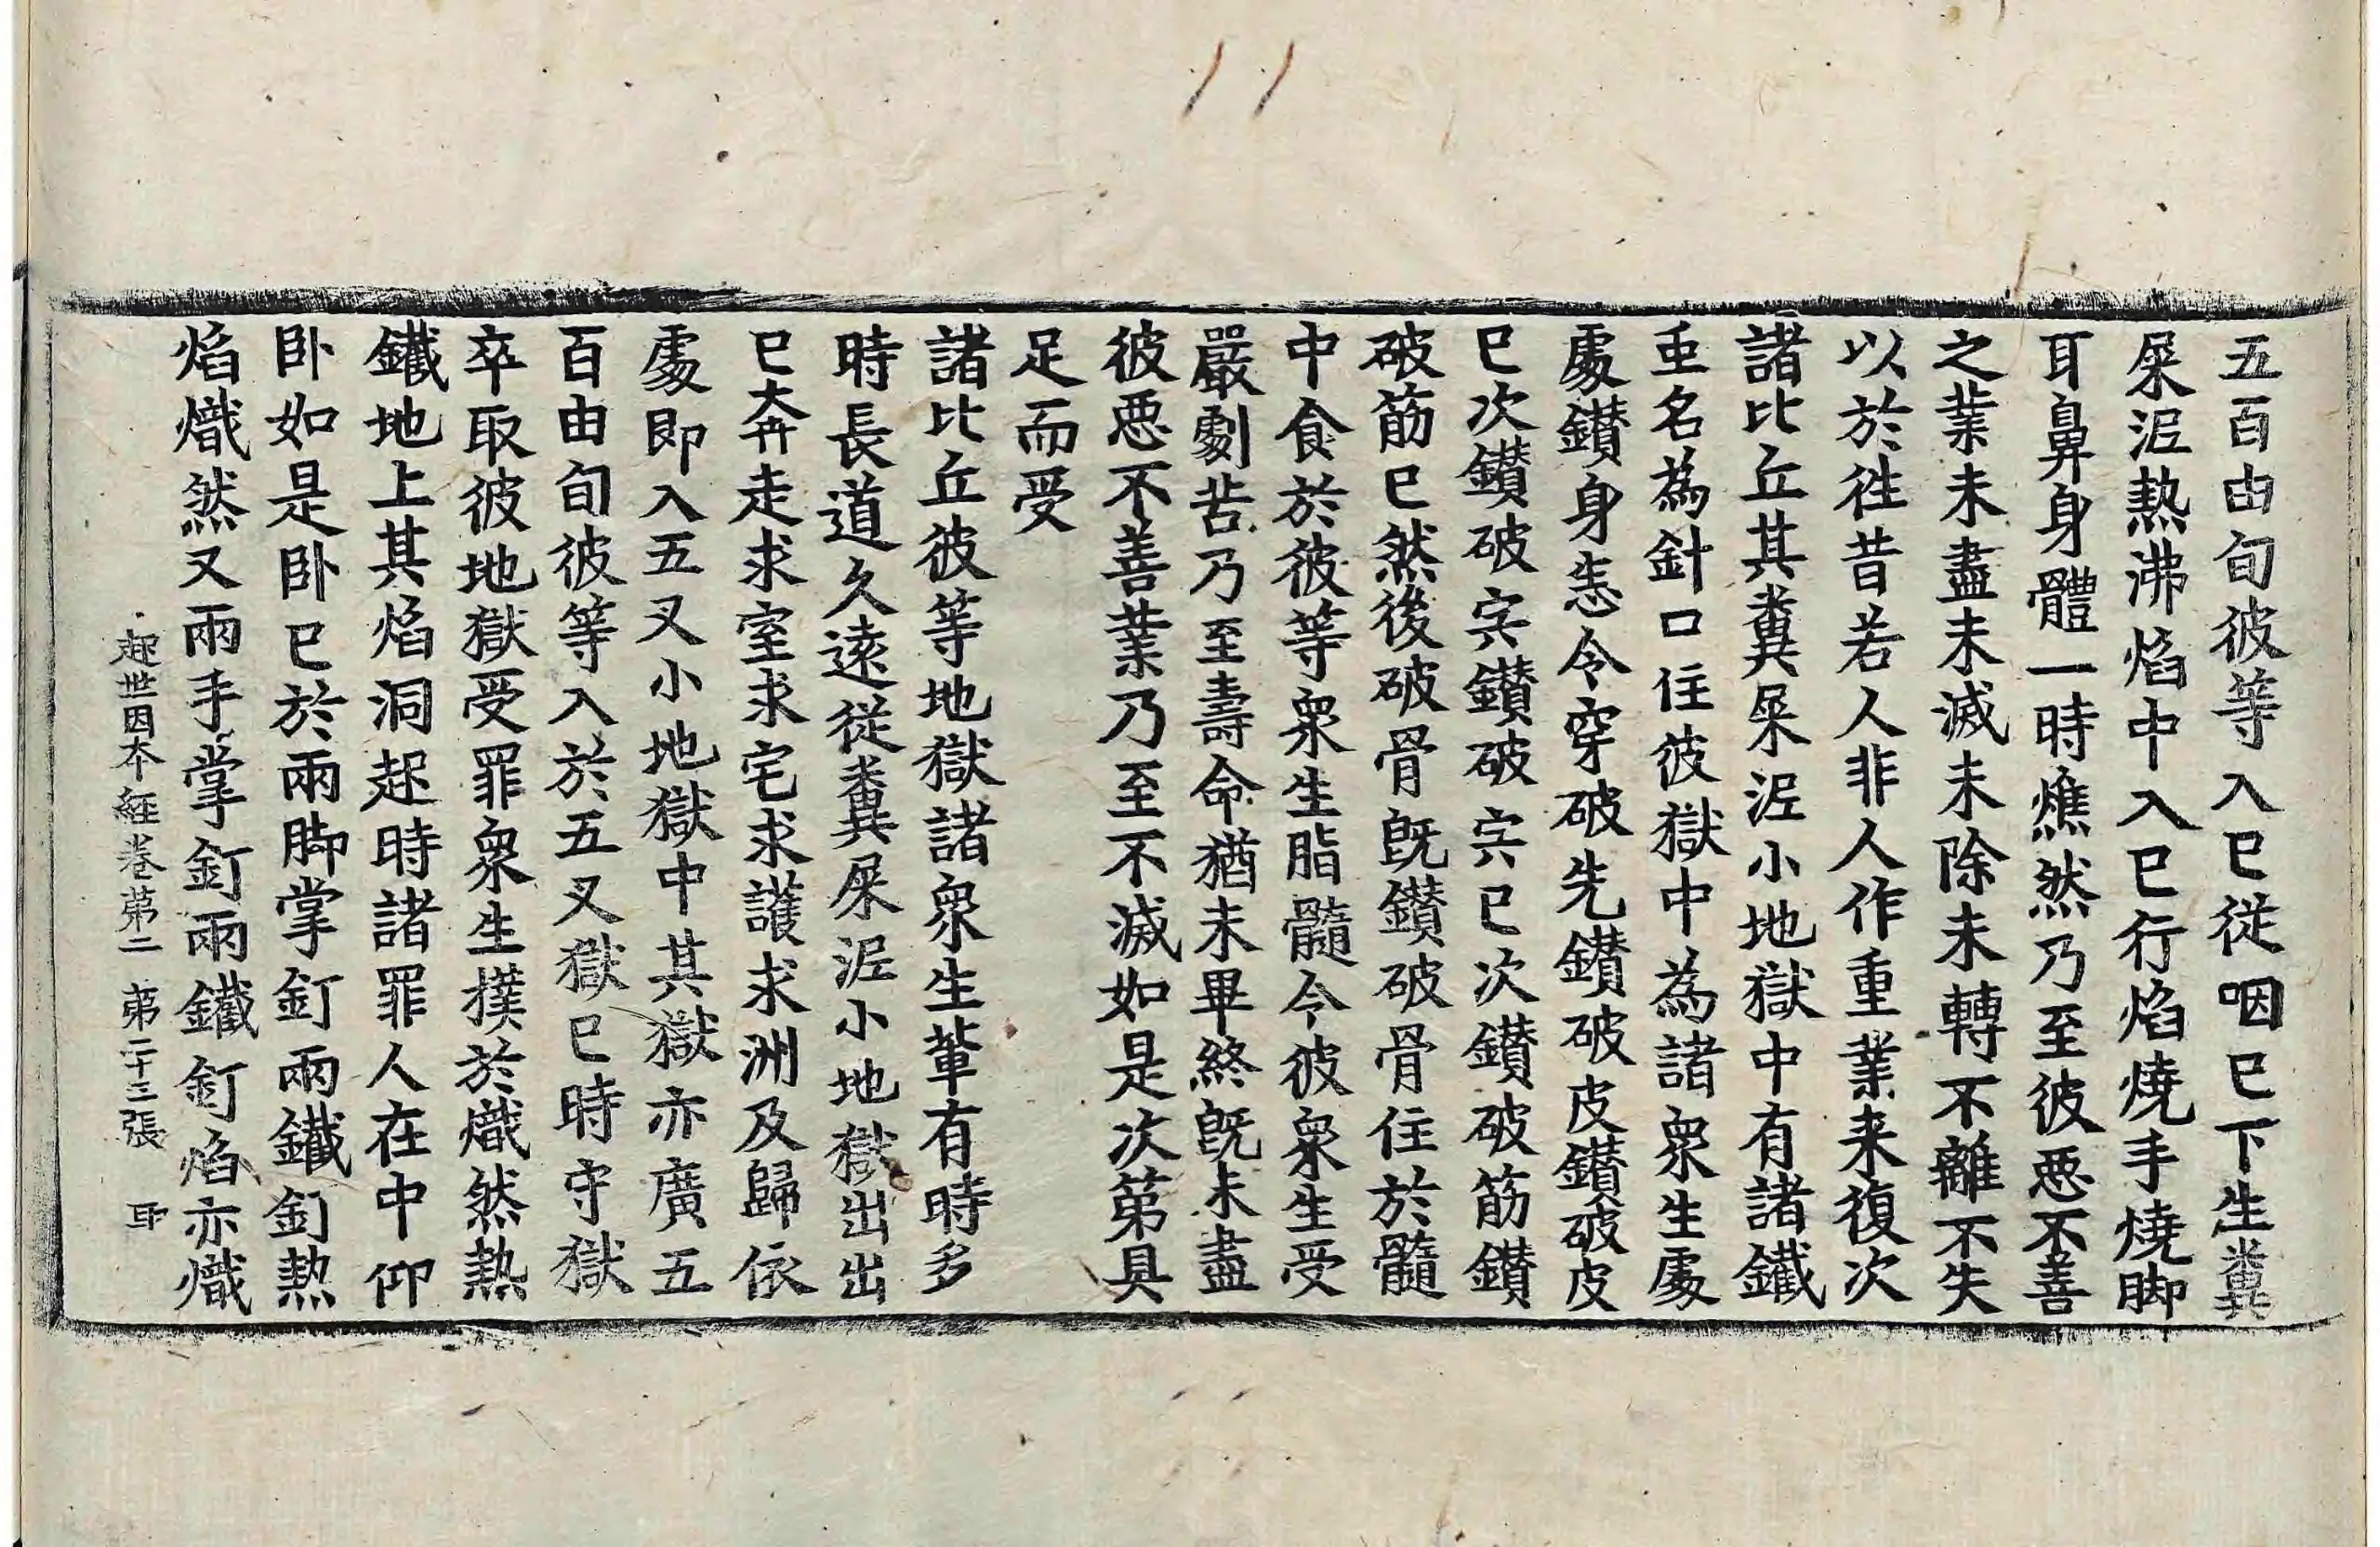 五百由旬彼等入已従咽已下生糞
屎泥熱沸焰中入已行焰燒手燒脚
耳鼻身體一時燋然乃至彼惡不善
之業未盡未滅未除未轉不離不失
以於徃昔若人非人作重業来復次
諸比丘其糞屎泥小地獄中有諸鐵
䖝名為針口住彼獄中為諸衆生處
處鑚身悉令穿破先鑚破皮鑚破皮
已次鑚破宍鑚破宍已次鑚破筋鑚
破筋已然後破骨旣鑚破骨住於髓
中食於彼等衆生脂髓令彼衆生受
嚴劇苦乃至壽命猶未畢終旣未盡
彼惡不善業乃至不滅如是次第具
足而受
諸比丘彼等地獄諸衆生軰有時多
時長道久遠従糞屎泥小地獄出出
已奔走求室求宅求護求洲及歸依
處即入五叉小地獄中其獄亦廣五
百由旬彼等入於五叉獄已時守獄
卒取彼地獄受罪衆生撲於熾然熱
鐵地上其焰洞起時諸罪人在中仰
卧如是卧已於兩脚掌釘兩鐵釘熱
焰熾然又兩手掌釘兩鐵釘焰亦熾
起世因本経卷第二 第二十三張